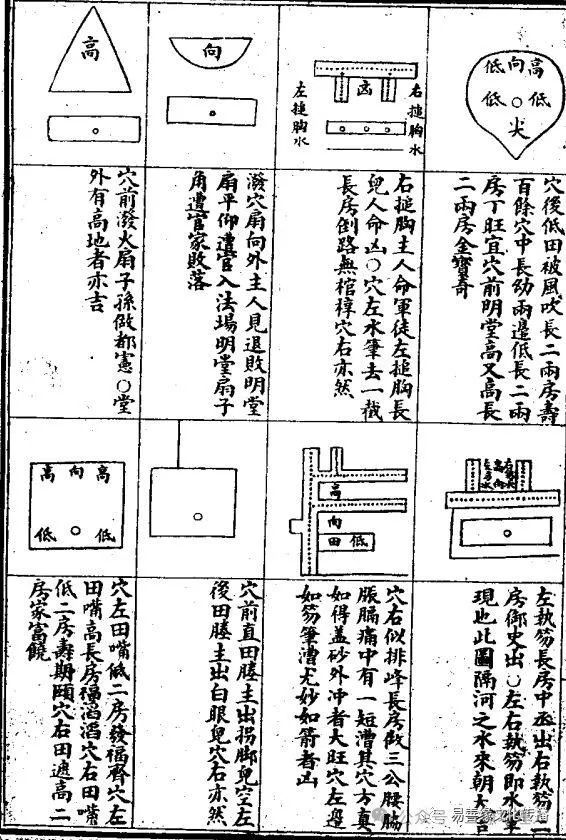 低向高
低○低
尖
穴後低田被風吹長二兩房壽
百餘穴中長幼兩邊低長二兩
房丁旺宜穴前明堂高又高長
二兩房金寶奇
右搥胸水
凶
左搥胸水
右搥胸主人命軍徒左搥胸長
兒人命凶○穴左水筆去一截
長房倒路無棺槨穴右亦然
向
潑穴扇向外主人見退敗明堂
扇平仰遭官入法場明堂扇子
角遭官家敗落
高
穴前潑火扇子孫做都憲○堂
外有高地者亦吉
左執笏長房中丞出右執笏
房御史出○左右執笏即水
現也此圖隔河之水來朝大吉
高
向
田低
穴右似排峰長房做三公腰腸
脹膈痛中有一短漕其穴方真
如得蓋砂外冲者大旺穴左邊
如笏筆漕尤妙如箭者凶
穴前直田塍主出拐脚兒空左
後田塍主出白眼兒穴右亦然
高向高
低○低
穴左田嘴低二房發福齊穴左
田嘴高長房福滔滔穴右田嘴
低二房壽期頤穴右田遶高二
房家富饒
公众号